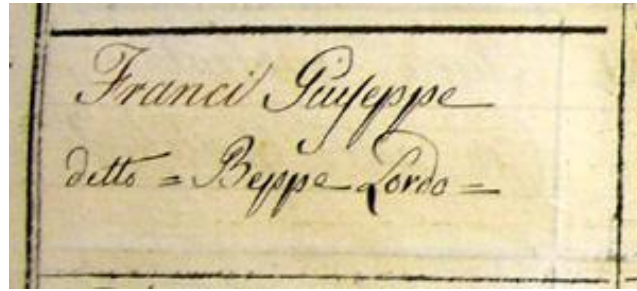 Franci Giuseppe
detto = Beppe Lordo =